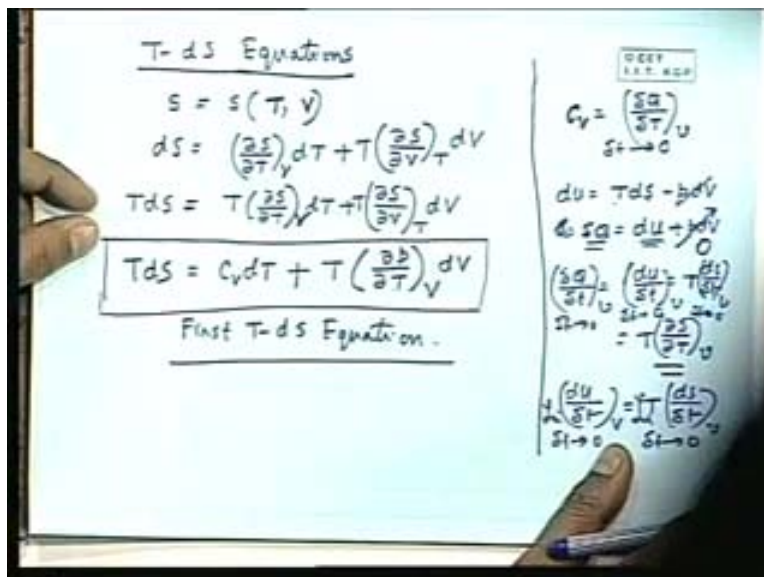 T-dS Equations
S = S(T, V)
dS = (∂S/∂T)_V dT + T(∂S/∂V)_T dV
TdS = T(∂S/∂T)_V dT + T(∂S/∂V)_T dV
TdS = C_V dT + T(∂p/∂T)_V dV
First T-dS Equation.
I.I.T. KGP
C_V = (δQ/δT)_V
δt→0
dU = TdS - pdV
δQ = dU + pdV
0
(δQ/δt)_V = (dU/δt)_V = T(dS/δt)_V
δt→0 δt→0 δt→0
= T(∂S/∂T)_V
Lt(dU/δt)_V = Lt T(dS/δt)_V
δt→0 δt→0